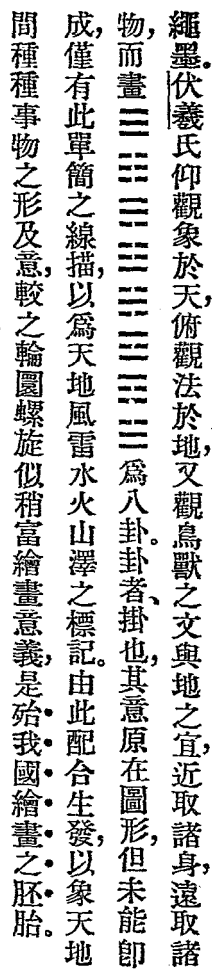 繩墨。伏羲氏仰觀象於天,俯觀法於地,又觀鳥獸之文與地之宜,近取諸身,遠取諸
物,而畫☰☵☶☳☴☲☷☱爲八卦。卦者、掛也,其意原在圖形,但未能卽
成,僅有此單簡之線描,以爲天地風雷水火山澤之標記。由此配合生發,以象天地
間種種事物之形及意,較之輪圜螺旋似稍富繪畫意義,是殆我國繪畫之胚胎。